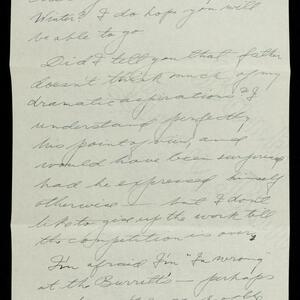 Winter? I do hope you will
be able to go.
Did I tell you that father
doesn't think much of my
dramatic aspirations? I
understand perfectly
his point of view, and
would have been surprised
had he expressed himself
otherwise — but I don't
like to give up the work till
the competition is over.
I'm afraid I'm "In wrong"
at the Burretts — perhaps